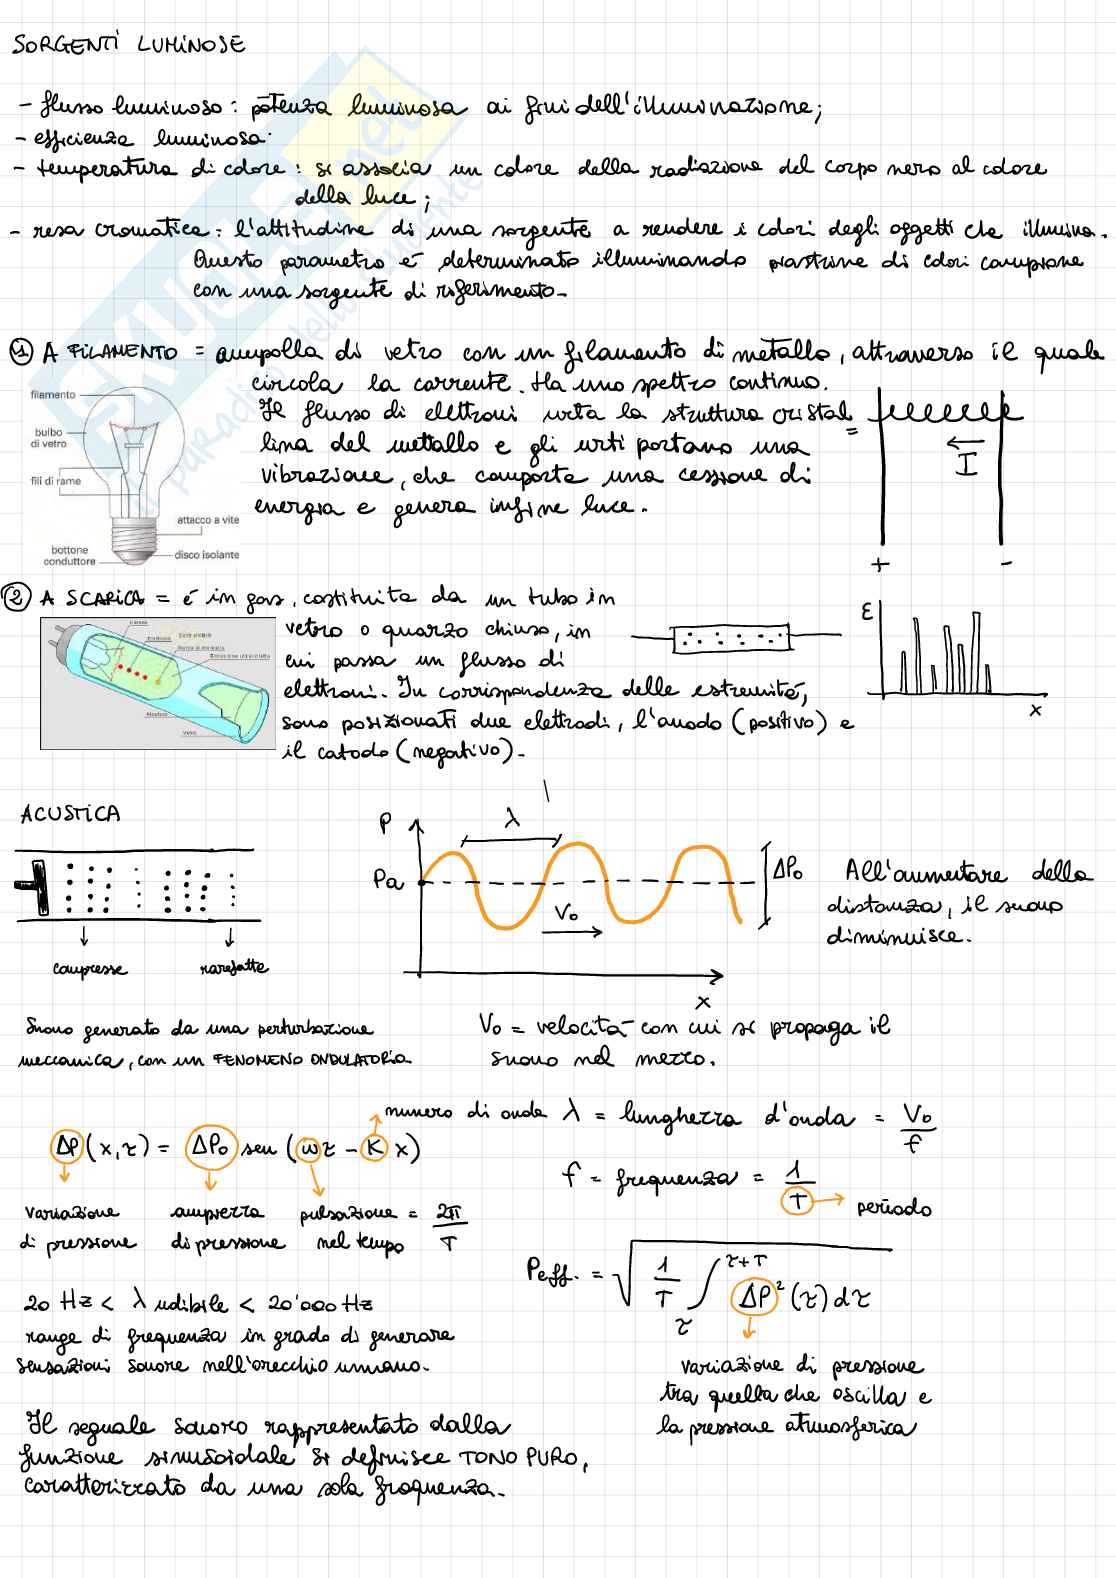 SORGENTI LUMINOSE
- flusso luminoso : potenza luminosa ai fini dell'illuminazione;
- efficienza luminosa.
- temperatura di colore : si associa un colore della radiazione del corpo nero al colore
della luce ;
- resa cromatica : l'attitudine di una sorgente a rendere i colori degli oggetti che illumina.
Questo parametro è determinato illuminando piastrine di colori campione
con una sorgente di riferimento.
① A FILAMENTO = ampolla di vetro con un filamento di metallo, attraverso il quale
circola la corrente. Ha uno spettro continuo.
Il flusso di elettroni urta la struttura cristal=
lina del mettallo e gli urti portano una
vibrazione, che comporta una cessione di
energia e genera infine luce.
filamento
bulbo
di vetro
fili di rame
attacco a vite
bottone
conduttore
disco isolante
I
+ -
② A SCARICA = è in gas, costituita da un tubo in
vetro o quarzo chiuso, in
cui passa un flusso di
elettroni. In corrispondenza delle estremità,
sono posizionati due elettrodi, l'anodo (positivo) e
il catodo (negativo).
ε
x
ACUSTICA
compresse
rarefatte
P
λ
Pa
V₀
ΔP₀
x
All'aumentare della
distanza, il suono
diminuisce.
Suono generato da una perturbazione
meccanica, con un FENOMENO ONDULATORIO.
V₀ = velocità con cui si propaga il
suono nel mezzo.
numero di onda
λ = lunghezza d'onda = V₀/f
ΔP (x,τ) = ΔP₀ sen (ωτ - K x)
f = frequenza = 1/T → periodo
variazione di pressione
ampiezza di pressione
pulsazione nel tempo = 2π/T
Peff. = √ 1/T ∫ τ τ+T ΔP² (τ) dτ
20 Hz < λ udibile < 20'000 Hz
range di frequenza in grado di generare
sensazioni sonore nell'orecchio umano.
variazione di pressione
tra quella che oscilla e
la pressione atmosferica
Il segnale sonoro rappresentato dalla
funzione sinusoidale si definisce TONO PURO,
caratterizzato da una sola frequenza.